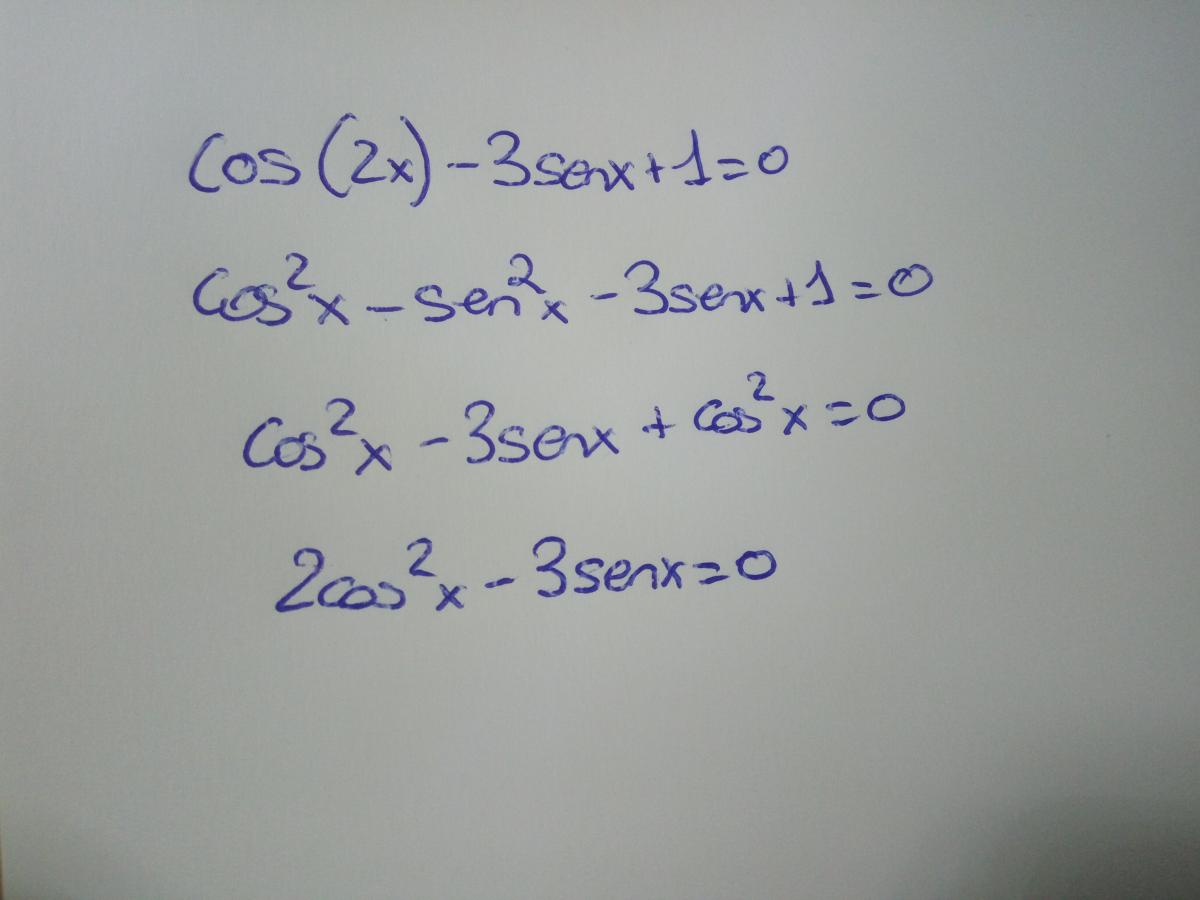 cos(2x) - 3senx + 1 = 0
cos²x - sen²x - 3senx + 1 = 0
cos²x - 3senx + cos²x = 0
2cos²x - 3senx = 0